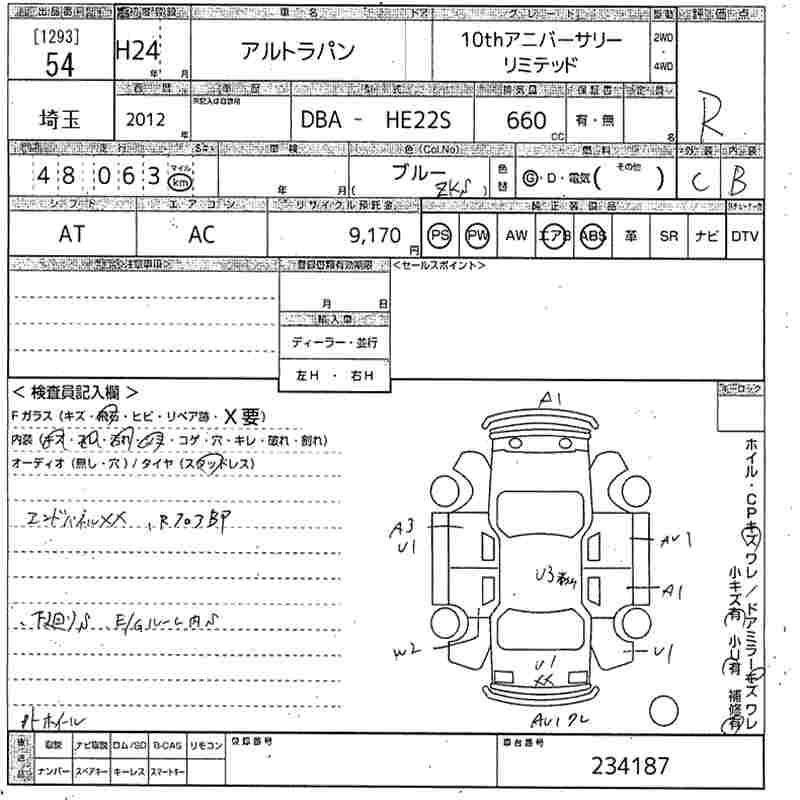 出品番号 初度登録 車名 ドア グレード 駆動 評価点
[1293]
54
H24 年 月
アルトラパン
10thアニバーサリー
リミテッド
2WD
4WD
R
車歴 型式 排気量 保証書 定員
埼玉
2012 年
DBA - HE22S
660 CC
有・無
名
走行 車検 色(Col.No) 燃料 外装 内装
48063
マイル
km
年 月
ブルー
( ZKS )
色替
G・D・電気( その他 )
C B
シフト エアコン リサイクル預託金 純正装備品
AT
AC
9,170円
PS PW AW エアB ABS 革 SR ナビ DTV
登録書類有効期限
<セールスポイント>
月 日
輸入車
ディーラー・並行
左H・右H
<検査員記入欄>
キーロック
Fガラス(キズ・飛石・ヒビ・リペア跡・X要)
内装(キズ・ ・汚れ・ ・コゲ・穴・キレ・破れ・割れ)
オーディオ(無し・穴)/タイヤ(スタッドレス)
エンドパネルXX 、Rフロア
下回りS E/Gルーム内S
ホイール
A1
A3
U1
AU1
U3
A1
W2
U1
U1
XX
AU1ワレ
ホイル・CPキズワレ/ドアミラーキズワレ
小キズ有 小U有 補修有
取説 ナビ取説 ロム/SD B-CAS リモコン
ナンバー スペアキー キーレス スマートキー
登録番号
車台番号
234187